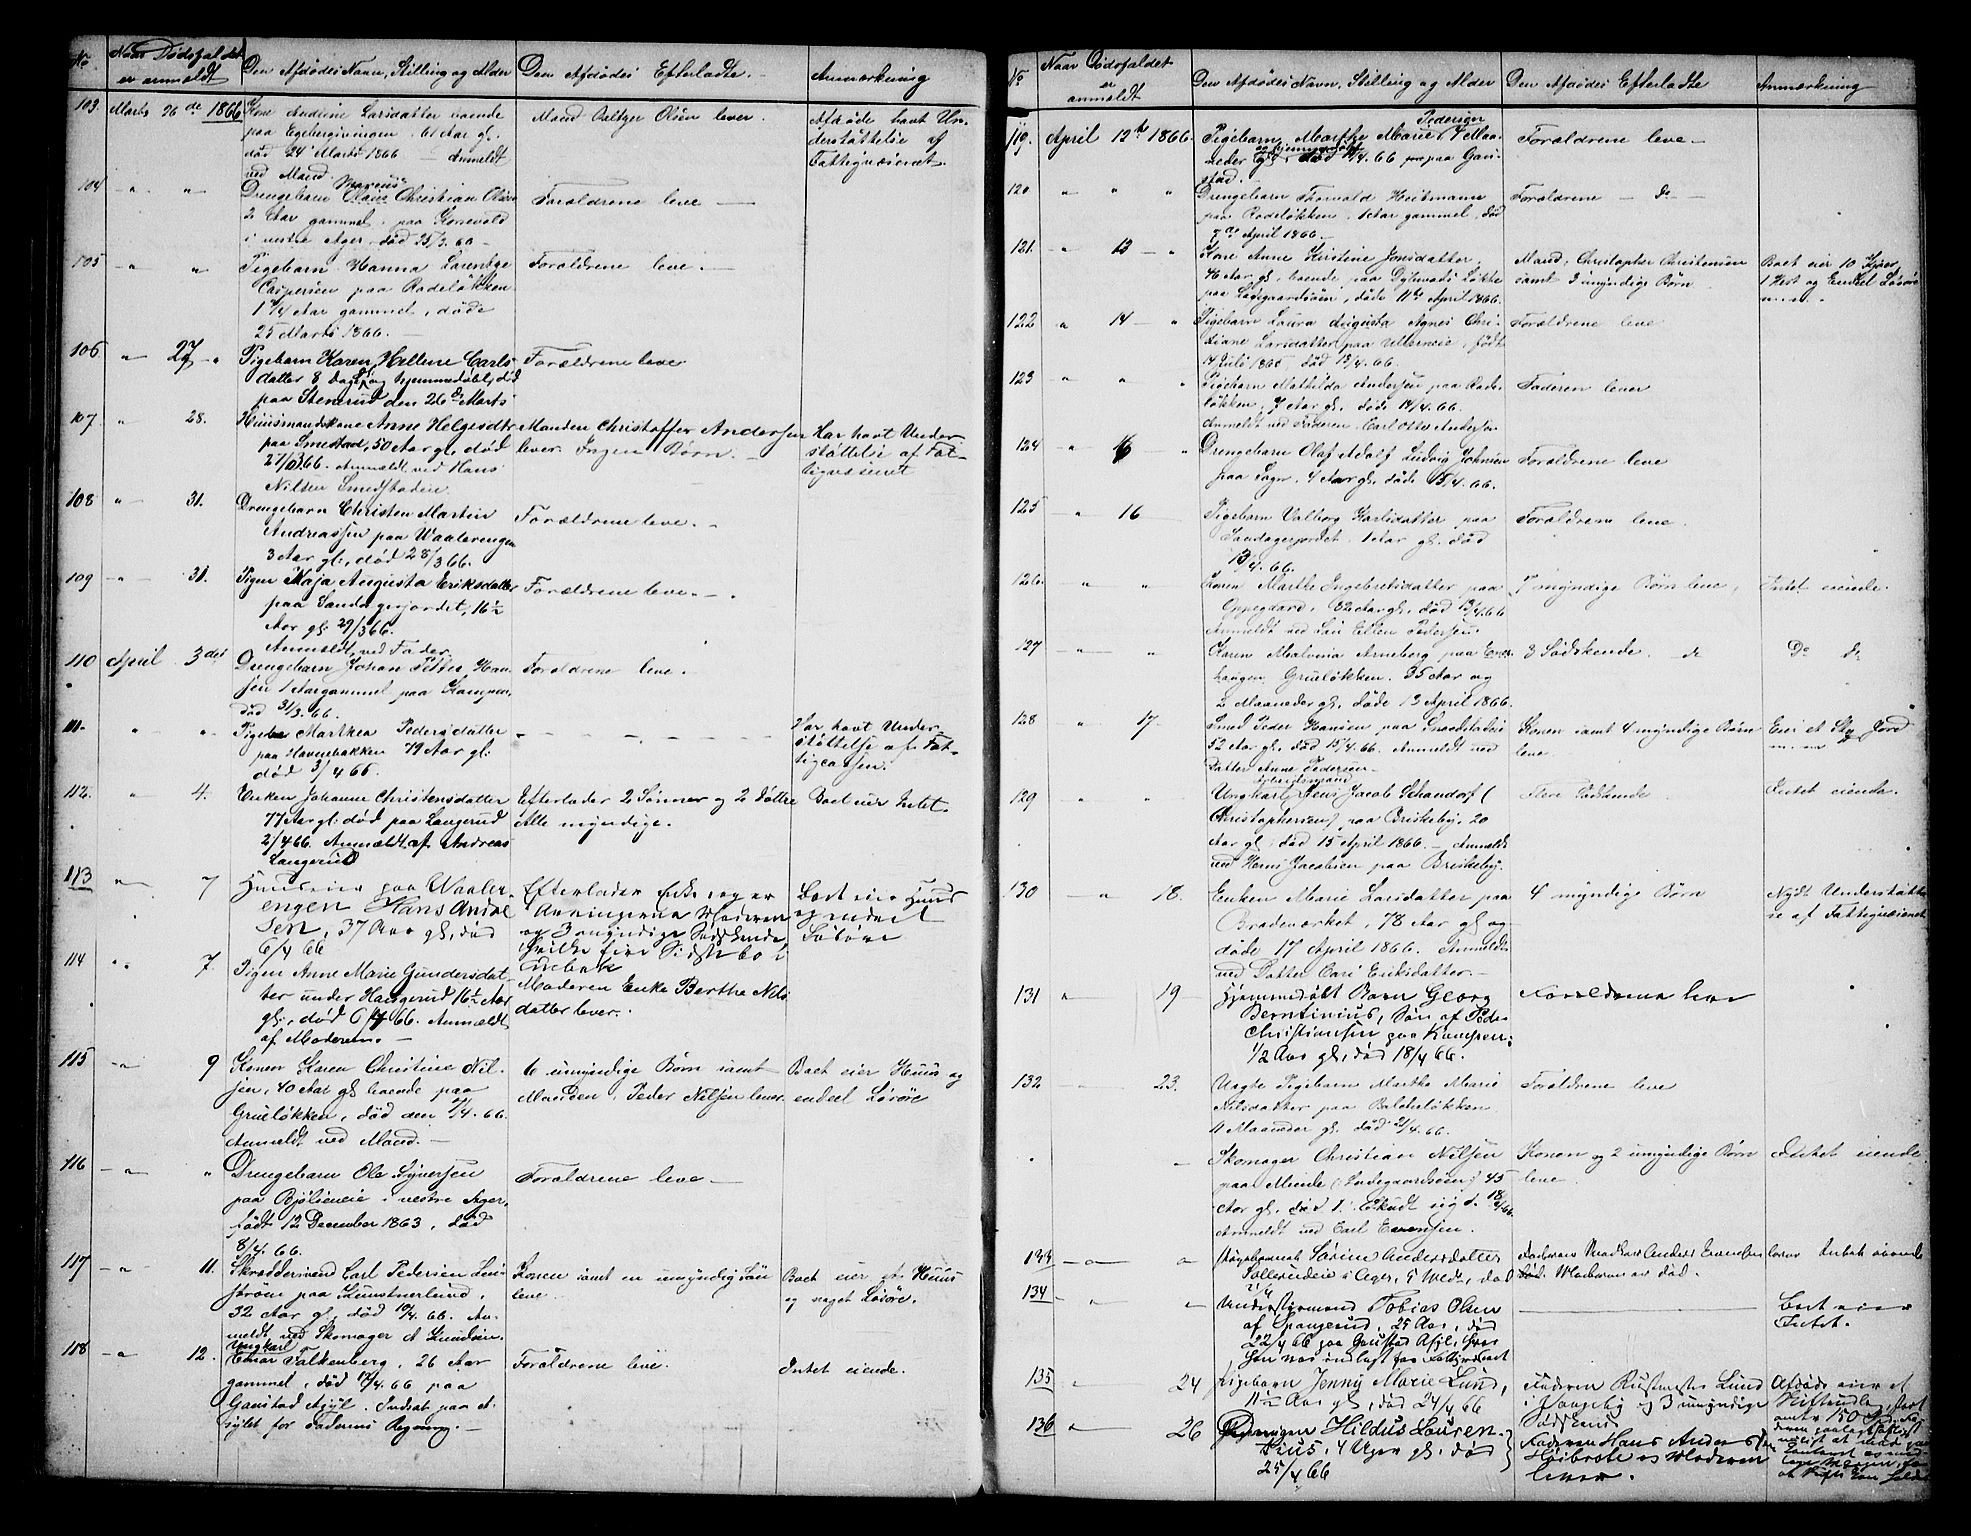 No
Naar Dødsfaldet
er anmeldt
Den Afdødes Navn, Stilling og Alder
Den Afdødes Efterladte.
Anmærkning
103
Marts 26de 1866
Kone Andrine Larsdatter boende
paa 61 Aar gl.
død 24 Marts 1866 — Anmeldt
ved Mand.
Mand Baltzer Olsen lever.
Afdøde havt Un-
derstøttelse af
Fattigvæsenet.
104
Drengebarn Olaus Marius Christian Olsen
2 Aar gammel, paa
i vestre Ager, død 25/3 66 —
Forældrene leve —
105
Pigebarn Hanna Lorentze
Caspersen paa Rodeløkken
1 1/4 Aar gammel, døde
25 Marts 1866. —
Forældrene leve. —
106
27
Pigebarn Karen Hellene Carls-
datter 8 Dage og hjemmedøbt, død
paa Stenerud den 26de Marts
Forældrene leve
107
28.
Huusmandskone Anne Helgesdtr
paa Smestad, 50 Aar gl, død
27/3 66. Anmeldt ved Hans
Nilsen Smedstadeie
Manden Christoffer Andersen
lever. Ingen Børn. —
Har havt Under-
støttelse af Fat-
tigvæsenet
108
31.
Drengebarn Christen Martin
Andreassen paa Waalerengen
3 Aar gl., død 28/3 66.
Forældrene leve. —
109
31.
Pigen Maja Augusta Eriksdatter
paa Sandagerjordet, 16 1/2
Aar gl. 29/3 66.
Anmeldt ved Fader.
Forældrene leve. —
110
April 3die
Drengebarn Johan Petter Han-
sen 1 Aar gammel paa Kampen,
død 31/3. 66.
Forældrene leve.
111.
Marthea Pedersdatter
paa Havnebakken 79 Aar gl:
død 3/4 66.
Har havt Under-
støttelse af Fat-
tigcassen.
112.
4.
Enken Johanne Christensdatter
77 Aar gl: død paa Langerud
2/4 66. Anmeldt af Andreas
Langerud
Efterlader 2 Sønner og 2 Døttre
Alle myndige.
Boet eier Intet
113
7
Huuseier paa Waaler-
engen Hans
sen, 37 Aar gl, død
6/4 66
Efterlader Enke, og er
Arvingerne Moderen
og 3 myndige Sødskende,
Boet eier Huus
og endeel
Løsøre
114
7.
Pigen Anne Marie Gundersdat-
ter under Haugerud 16 1/2 Aar
gl., død 6/4 66. Anmeldt
af Moderen. —
Moderen Enke Berthe Nils-
datter lever.
115
9
Konen Karen Christine Nil-
sen, 40 Aar gl boende paa
Grueløkken, død den 7/4. 66.
Anmeldt ved Mand. —
6 umyndige Børn samt
Manden, Peder Nilsen lever.
Boet eier Huus og
endeel Løsøre
116
Drengebarn Ole Syversen
paa Bjølseneie i vestre Ager,
født 12 December 1863, død
8/4. 66.
Forældrene leve —
117
11.
Skræddersvend Carl Pedersen Lund-
paa
32 Aar gl, død 10/4. 66. An-
meldt ved Skomager
Konen samt en umyndig Søn
leve.
Boet eier et Huus
og noget Løsøre.
118
12.
Ungkarl
Einar Falkenberg, 26 Aar
gammel, død 10/4. 66 paa
Gaustad Asyl. Indsat paa A-
sylet for Faderens Regning. —
Forældrene leve.
Intet eiende.
No
Naar Dødsfaldet
er
anmeldt
Den Afdødes Navn, Stilling og Alder
Den Afdødes Efterladte
Anmærkning
119.
April 12te 1866.
Pigebarn Marthe Marie Pedersen 4 Maa-
neder gl, død /4. 66 paa Gau-
stad. —
Forældrene leve —
120
Drengebarn Thorvald Heitmann
paa Rodeløkken, 1 Aar gammel, død
April 1866. —
Forældrene — do —
121.
13
Kone Anne Kirstine Jonsdatter,
46 Aar gl., boende paa Løkke
paa Ladegaardsøen, døde 11te April 1866.
Mand, Christopher Christensen
samt 3 umyndige Børn
Boet eier 10 Kjøer,
1 Hest og Endeel Løsøre
m. m.
122
14
Pigebarn Laura Augusta Agnes Chri-
stiane Larsdatter paa Ullerneie, født
14 Juli 1865 død 13/4. 66.
Forældrene leve
123
Pigebarn Mathilda Andersen paa Rode-
løkken, 7 Aar gl, døde 14/4. 66.
Anmeldt ved Faderen Carl Otto Andersen
Faderen lever
124
16
Drengebarn Olaf Adolf Ludvig Johnsen
paa Sogn, 4 Aar gl, døde 15/4. 66.
Forældrene leve
125
16
Pigebarn Valborg Karlsdatter paa
Sandagerjordet, 1 Aar gl. død
13/4. 66.
Forældrene leve.
126.
Konen Marthe Ingebretsdatter paa
Oppegaard, 82 Aar gl, død 13/4. 66
Anmeldt ved Søn Ellen Pedersen
7 myndige Børn leve,
Intet eiende.
127
Karen Malvina Arneberg paa Ener-
haugen, Grueløkken. 35 Aar og
2 Maaneder gl, døde 13 April 1866.
3 Sødskende do
Do do
128
17.
Smed Peder Hansen paa Smedstadeie
52 Aar gl, død 15/4. 66. Anmeldt ved
Datter Anne Pedersen —
Konen samt 4 myndige Børn
leve.
Eier et Stk Jord
m. m
129
Arbeidsmand
Ungkarl Jens Jacob Schandorf (
Christophersen) paa Briskeby, 20
Aar gl, død 15 April 1866. — Anmeldt
ved Jacobsen paa Briskeby.
Flere Sødskende
Intet eiende.
130
18.
Enken Marie Larsdatter paa
Brødeværket, 78 Aar gl og
døde 17 April 1866. Anmeldt
ved Datter Cari Eriksdatter. —
4 myndige Børn
Nydt Understøttel-
se af Fattigvæsenet
131
19
Hjemmedøbt Barn Georg
Berntinius, Søn af Peder
Christiansen paa Kampen;
1/2 Aar gl, død 18/4 66.
Forældrene leve
132
23.
Uægte Pigebarn Marthe Marie
Nilsdatter paa Balkeløkken
11 Maaneder gl. død 21/4. 66.
Forældrene leve
Skomager Christian Nilsen
paa Minde (Ladegaardsøen) 45
Aar gl, død. / skudt sig d. 18/4 66.
Anmeldt ved Carl Evensen.
Konen og 2 umyndige Børn
leve.
Intet eiende.
133
Pigebarnet Sørine Andersdatter
i Ager, 5 Mdr, død
21/4
Faderen Anders Evensen lever
Moderen er død.
Intet eiende
134
Tobias Olsen
af Spangerud, 25 Aar, død
22/4 66 paa Gaustad Asyl, hvor
han var indlagt for
Boet eier
Intet.
135
24
Pigebarn Jenny Marie Lund,
11 1/2 Aar gl, død 24/4 66
Faderen Lund
i og 3 umyndige
Sødskende
Afdøde eier et
136
26
Drengen Hildus Lauren-
tius, 4 Uger gl, død
25/4 66
Faderen Hans Andersen
Høibraate og Moderen
lever.